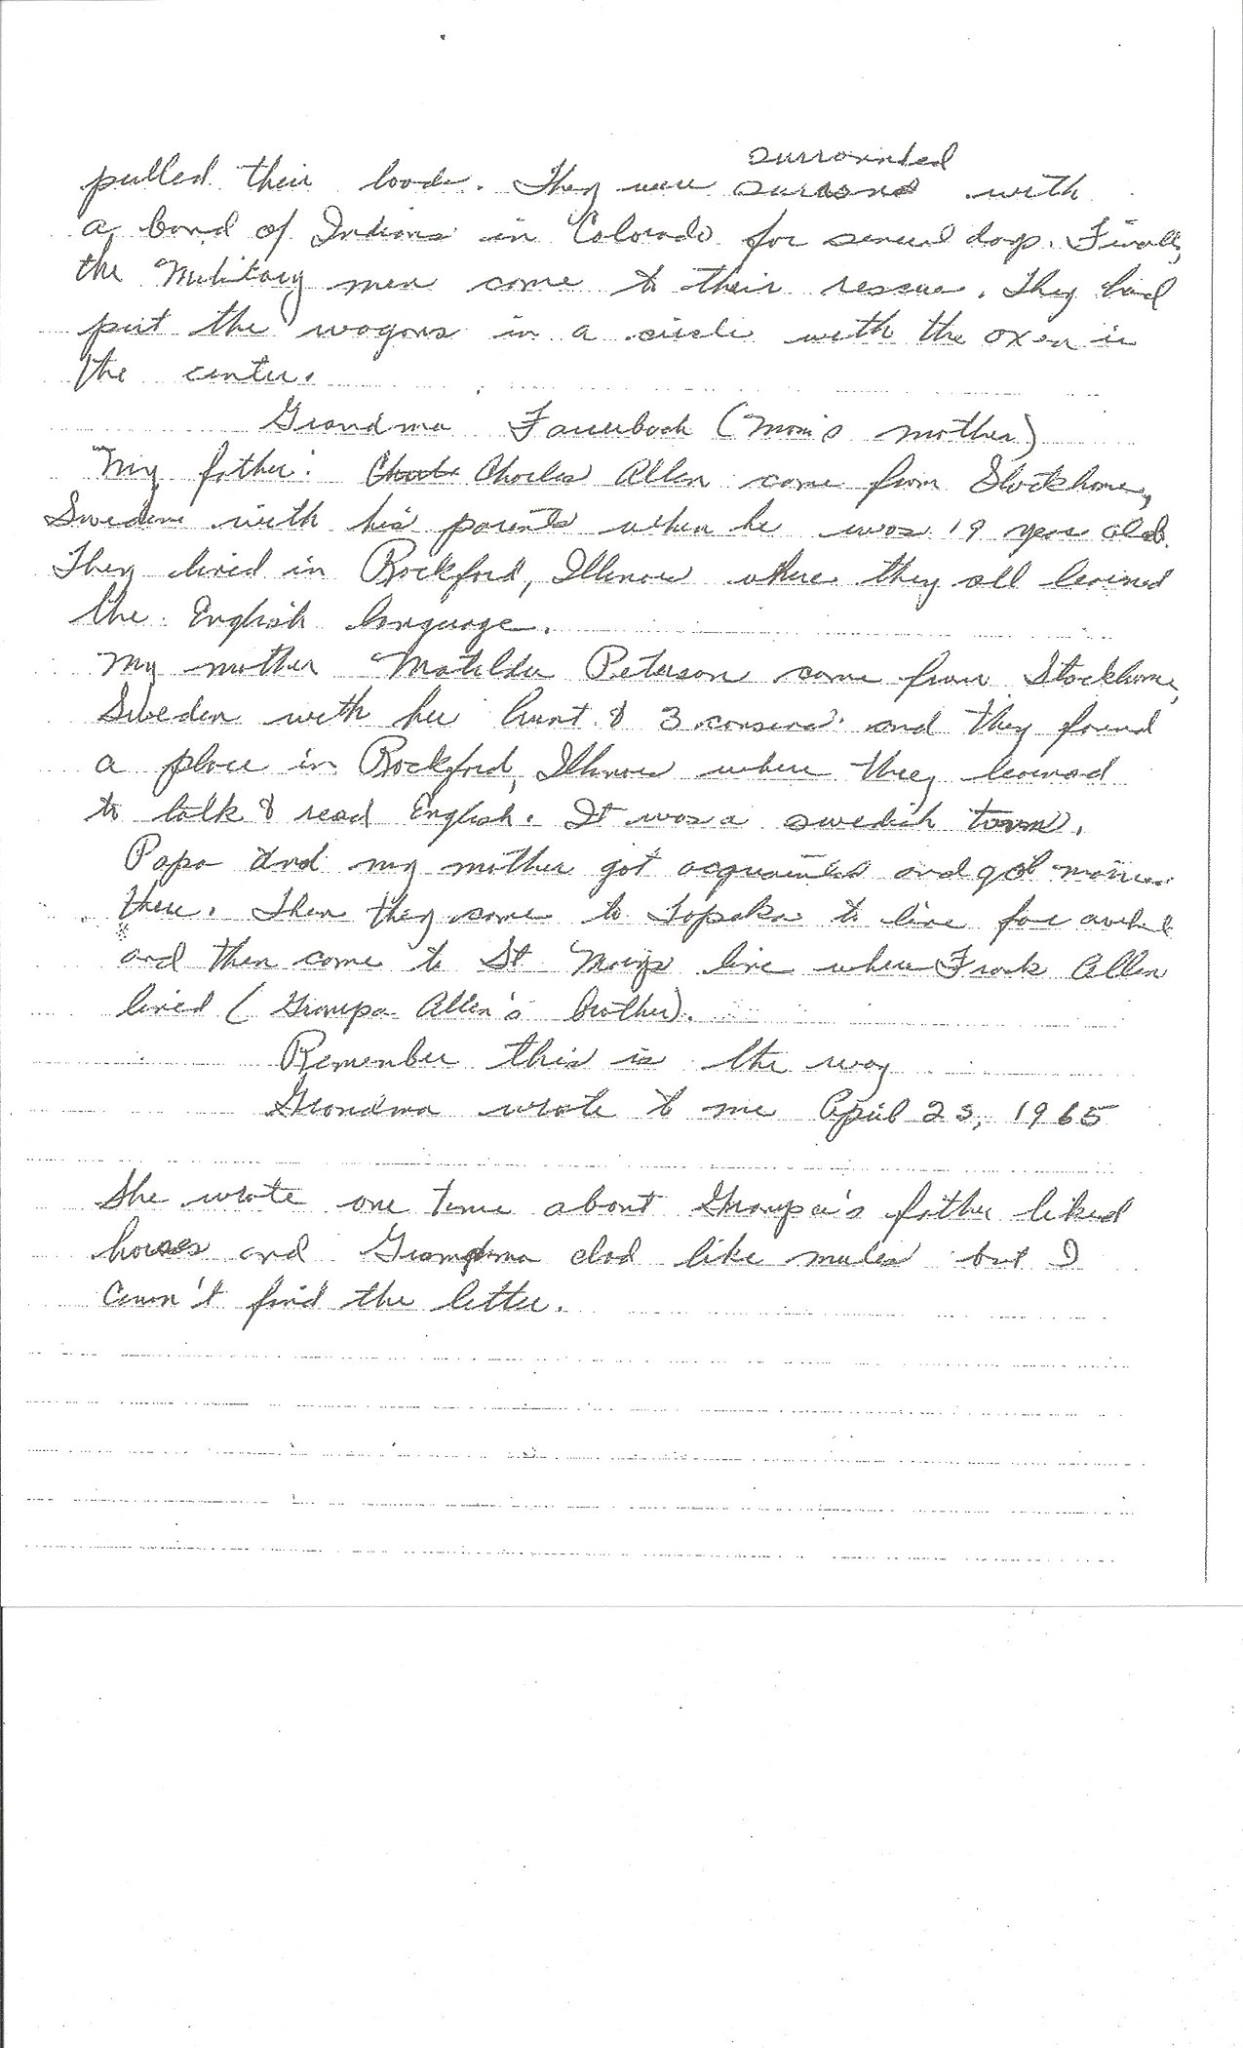 surrounded
pulled their loads. They were with
a band of Indians in Colorado for several days. Finally
the Military men come to their rescue. They had
put the wagons in a circle with the oxen in
the center.
Grandma Fauerbach (Mom's mother)
My father: Charles Allen come from Stockhome,
Sweden with his parents when he was 19 year old.
They lived in Rockford, Illinois where they all learned
the English language.
My mother Matilda Peterson come from Stockhome,
Sweden with her Aunt & 3 and they found
a place in Rockford, Illinois where they learned
to talk & read English. It was a swedish town.
Papa and my mother got acquainted and got married
there. Then they come to Topeka to live for awhile
and then come to St Marys line where Frank Allen
lived (Grampa Allen's brother).
Remember this is the way
Grandma wrote to me April 23, 1965
She wrote one time about Grampa's father liked
horses and Grandma dad like mules but I
can't find the letter.